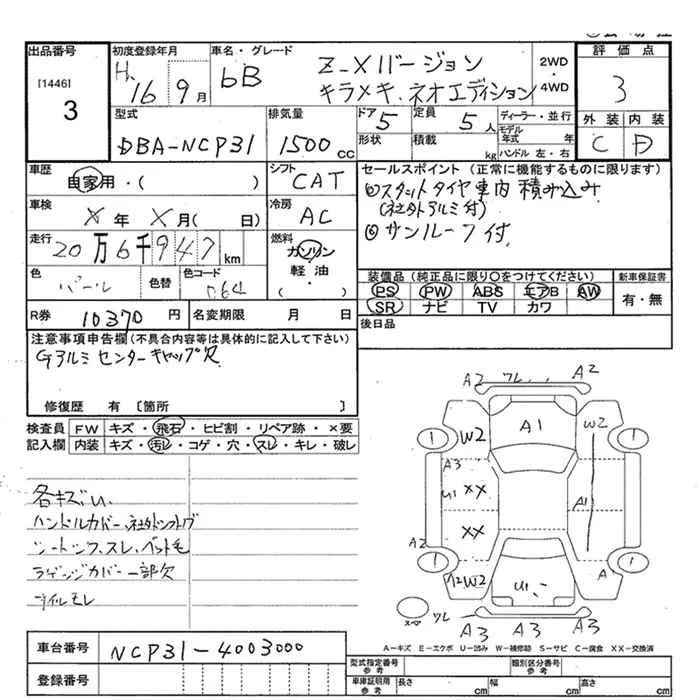 出品番号
[1446]
3
初度登録年月
H. 16 9月
車名・グレード
bB
Z-Xバージョン
キラメキ.ネオエディション
2WD
・
4WD
評価点
3
外装 内装
C D
型式
DBA-NCP31
排気量
1500 cc
ドア 5
形状
定員 5人
積載 kg
ディーラー・並行
モデル年式 年
ハンドル 左・右
車歴
自家用・( )
シフト
CAT
車検
X年 X月( 日)
冷房
AC
走行
20万6千947 km
燃料
ガソリン
軽油
・
( )
色
パール
色替
色コード
064
R券 10370円
名変期限 月 日
セールスポイント(正常に機能するものに限ります)
①スタットタイヤ車内積み込み
(社外アルミ付)
◎サンルーフ付
装備品(純正品に限り〇をつけてください)
PS PW ABS エアB AW
SR ナビ TV カワ
新車保証書
有・無
後日品
注意事項申告欄(不具合内容等は具体的に記入して下さい)
Gアルミセンターキャップ欠
修復歴 有〔箇所 〕
検査員記入欄
FW キズ・飛石・ヒビ割・リペア跡・×要
内装 キズ・汚レ・コゲ・穴・スレ・キレ・破レ
各キズU
ハンドルカバー、社外シフトノブ
シートシワ、スレ、ペット毛
ラゲッジカバー一部欠
オイルモレ
A2 ワレ A2
1 W2 A1 W2 1
A3
U1 XX A1
XX
A2
1 A2 W2 U1 A1 1
スペア ワレ A3 A3 A3
A-キズ E-エクボ U-凹み W-補修跡 S-サビ C-腐食 XX-交換済
車台番号 NCP31-4003000
登録番号
型式指定番号
参考
類別区分番号
参考
車庫証明用
参考
長さ cm 幅 cm 高さ cm